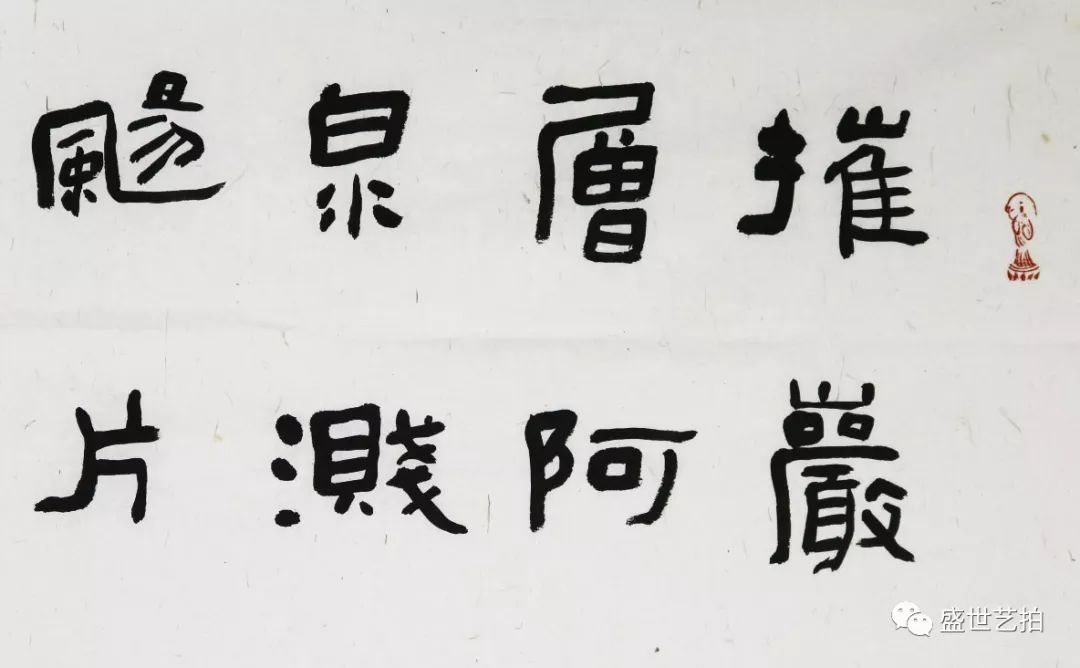 摧巖
層阿
泉濺
颺片
盛世艺拍